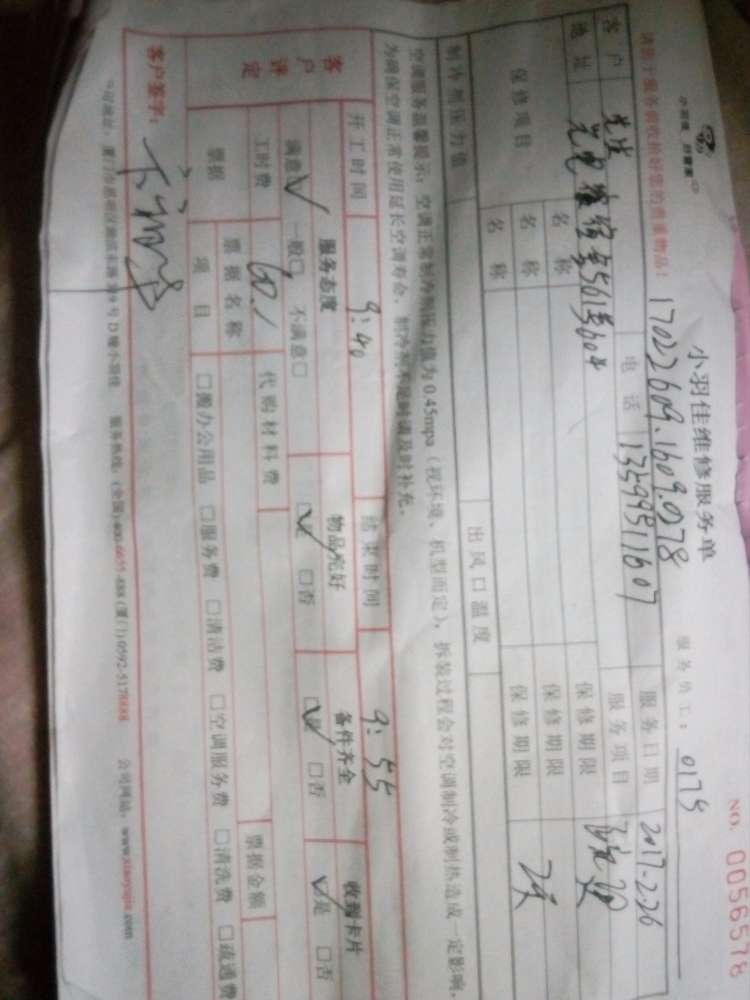 小羽佳维修服务单
NO. 0056578
17022609.1609.0178
服务员工: 0179
请您于服务前收拾好您的贵重物品!
客户
电话 13599511607
服务日期 2017-2-26
地址 号601
服务项目
保修项目
名称 保修期限
名称 保修期限
名称 保修期限
制冷剂压力值 出风口温度
空调服务温馨提示: 空调正常制冷剂压力值为0.45mpa (视环境、机型而定), 拆装过程会对空调制冷或制热造成一定影响,
为确保空调正常使用延长空调寿命, 制冷剂不足时请及时补充。
开工时间 9:40 结束时间 9:55
客户评定 服务态度 物品完好 备件齐全 收到卡片
满意☑ 一般□ 不满意□ ☑是 □否 ☑是 □否 ☑是 □否
工时费 60.1 代购材料费
票据 票据名称 票据金额
项目 □搬办公用品 □服务费 □清洁费 □空调服务费 □清洗费 □疏通费
客户签字:
D幢小羽佳 服务热线: (全国)400-6655-888 (厦门)0592-5178888 公司网站: www.xiaoyujia.com